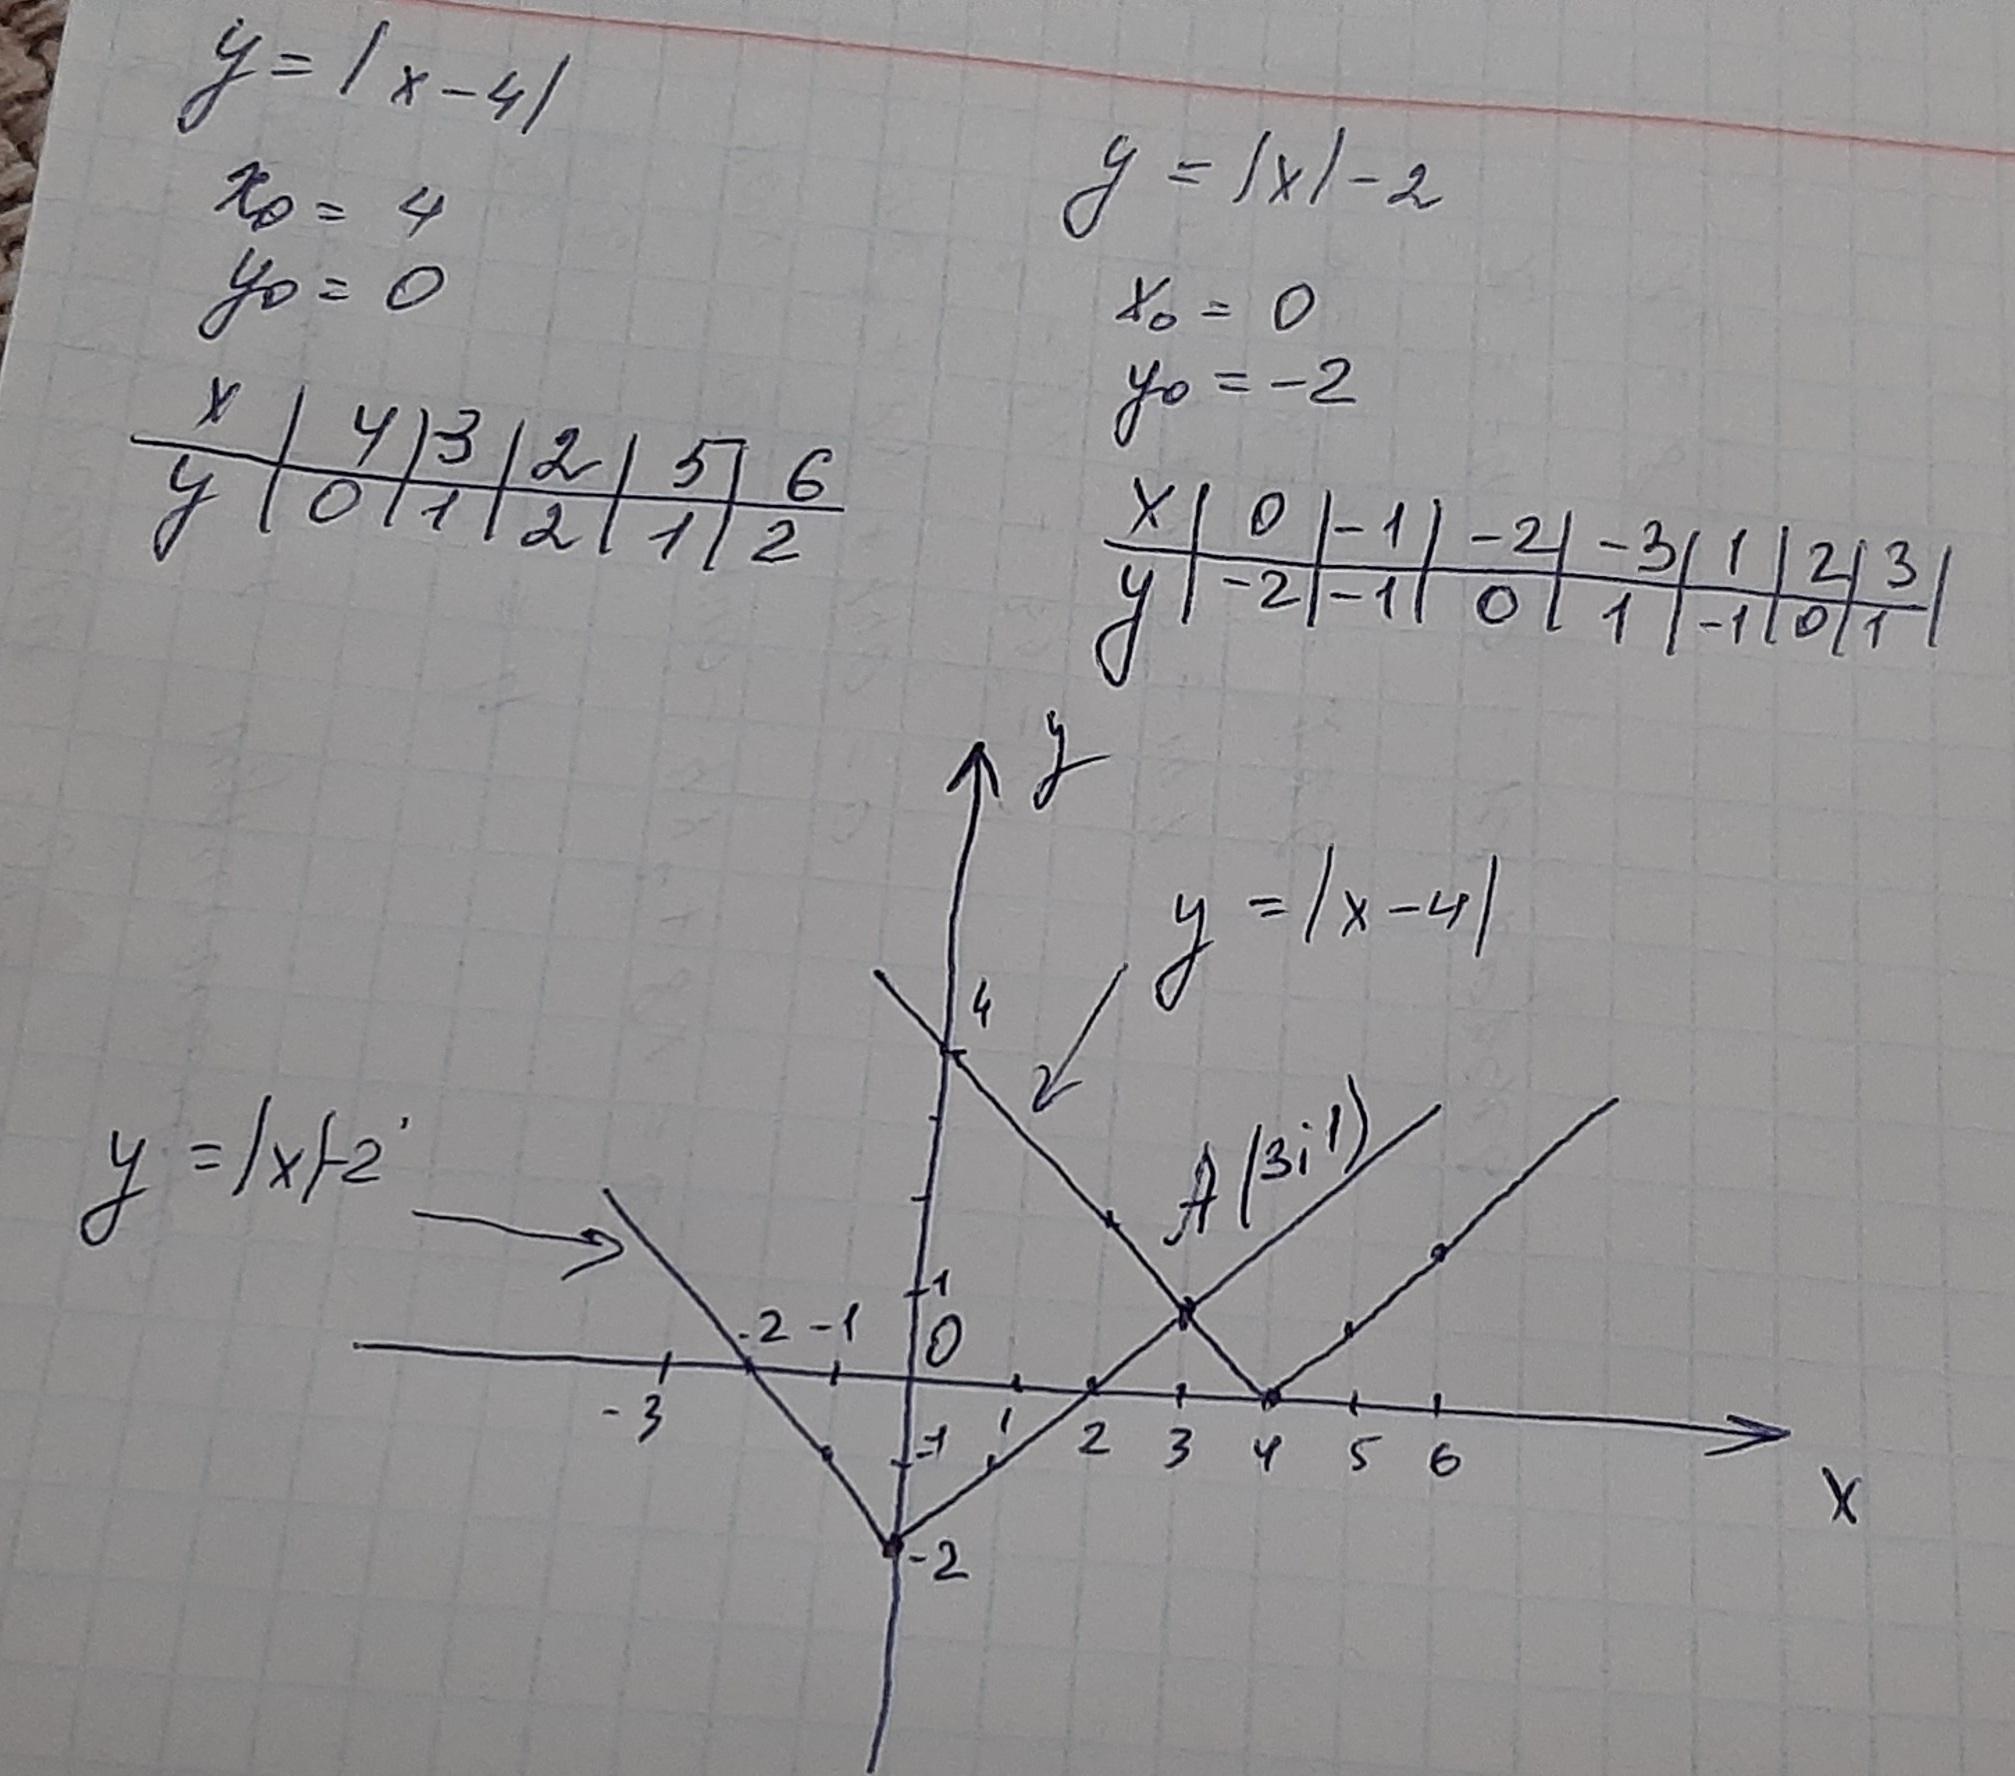 y = |x-4|
x₀ = 4
y₀ = 0
x | 4 | 3 | 2 | 5 | 6
y | 0 | 1 | 2 | 1 | 2
y = |x|-2
x₀ = 0
y₀ = -2
x | 0 | -1 | -2 | -3 | 1 | 2 | 3 |
y | -2 | -1 | 0 | 1 | -1 | 0 | 1 |
y
y = |x-4|
4
A(3;1)
y = |x|-2
1
-2 -1 0
-3 -1 1 2 3 4 5 6
x
-2